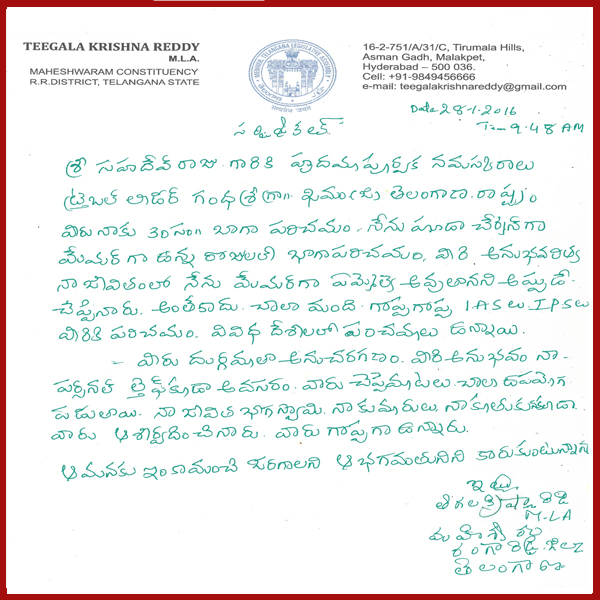 TEEGALA KRISHNA REDDY
M.L.A.
MAHESHWARAM CONSTITUENCY
R.R.DISTRICT, TELANGANA STATE
16-2-751/A/31/C, Tirumala Hills,
Asman Gadh, Malakpet,
Hyderabad – 500 036.
Cell: +91-9849456666
e-mail: teegalakrishnareddy@gmail.com
Date 28-1-2016
Time 9.48 AM
శ్రీ సహదేవ్ రాజు గారికి హృదయపూర్వక నమస్కారాలు
ట్రైబల్ లీడర్ తెలంగాణ రాష్ట్రం
వీరు నాకు 30 సం॥ బాగా పరిచయం. నేను హుడా చేర్మన్ గా
మేయర్ గా ఉన్న రోజులలో బాగా పరిచయం, వీరి
నా జీవితంలో నేను మేయర్ గా ఎమ్మెల్యే అవుతానని అప్పుడే
చెప్పినారు. అంతేకాదు. చాలా మంది గొప్పగొప్ప IAS లు. IPS లు
వీరికి పరిచయం. వివిధ దేశాలలో పరిచయాలు ఉన్నాయి.
– వీరు దుర్గమాతా అనుచరగణం. వీరి అనుభవం నా-
పర్సనల్ లైఫ్ కుడా అవసరం. వారు చెప్పేమాటలు. చాలా ఉపయోగ
పడుతాయి. నా జీవిత భాగస్వామి. నా కుమారులు, నా కూతురు కూడా
వారు ఆశీర్వదించినారు. వారు గొప్పగా ఉన్నారు.
ఆయనకు ఇంకా మంచి జరగాలని ఆ భగవంతునిని కోరుకుంటున్నాను
ఇట్లు
తీగల క్రిష్ణా రెడ్డి
M-LA
మహేశ్వరం
రంగారెడ్డి జిల్లా
తెలంగాణ